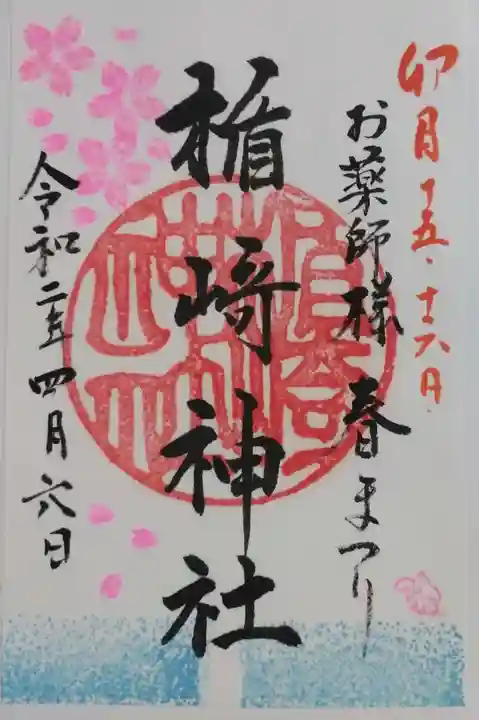 卯月十五・十六日.
お薬師様 春まつり
楯﨑神社
令和二年四月六日